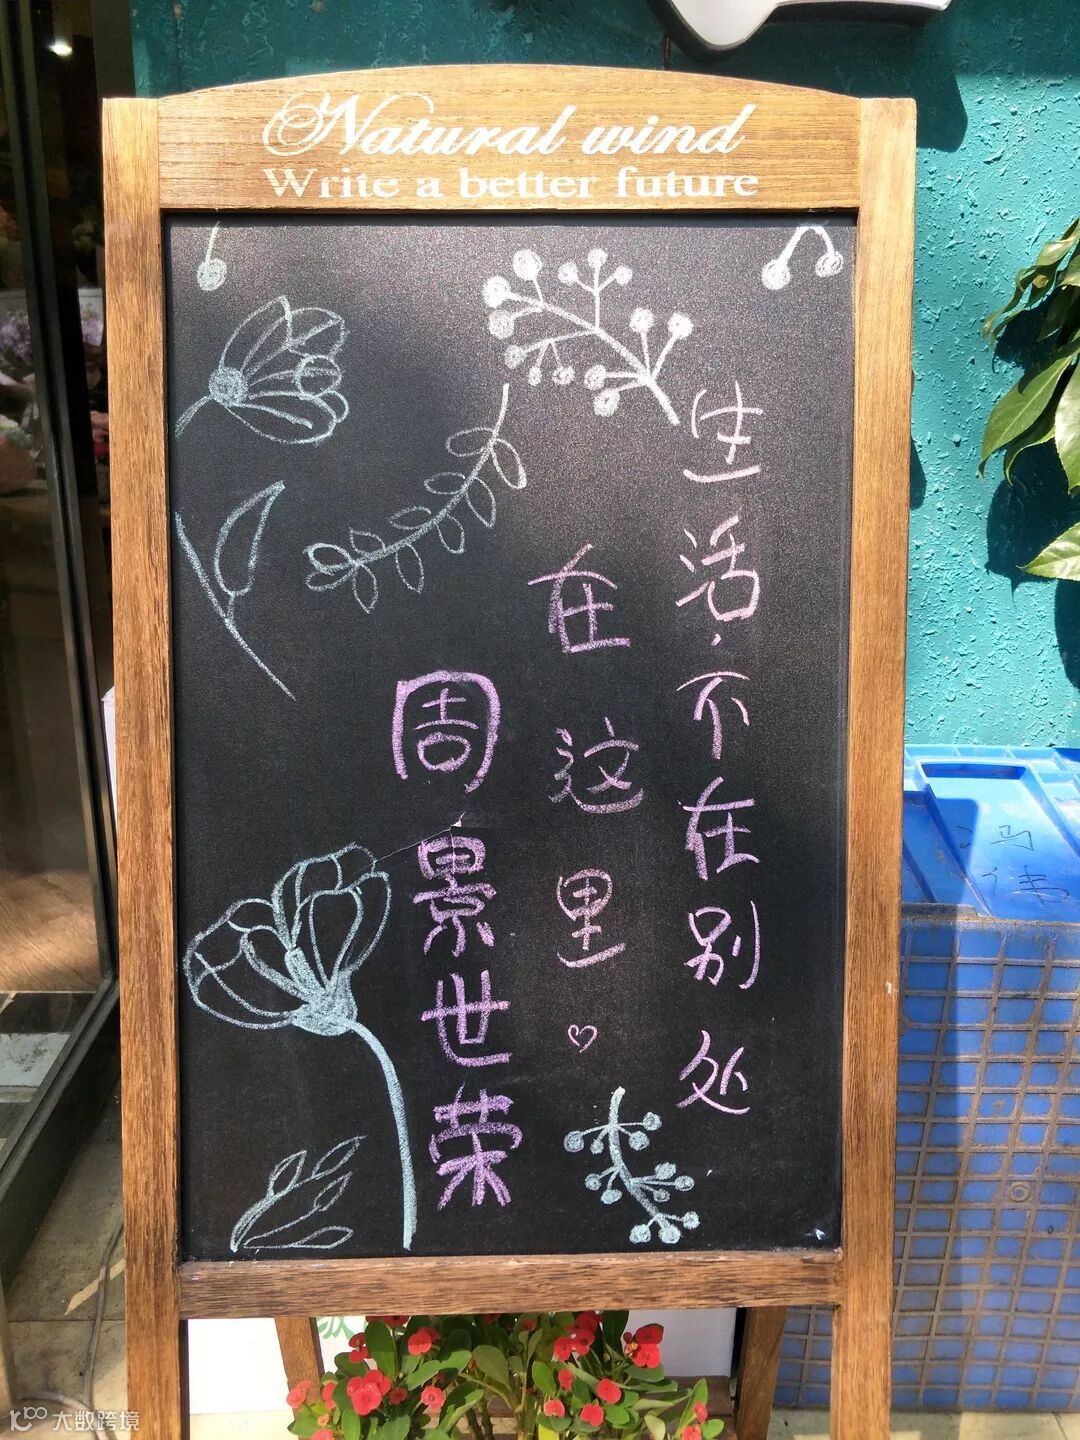 Natural wind
Write a better future
生活·不在别处
在这里♡
周景世荣
冯伟
大数跨境